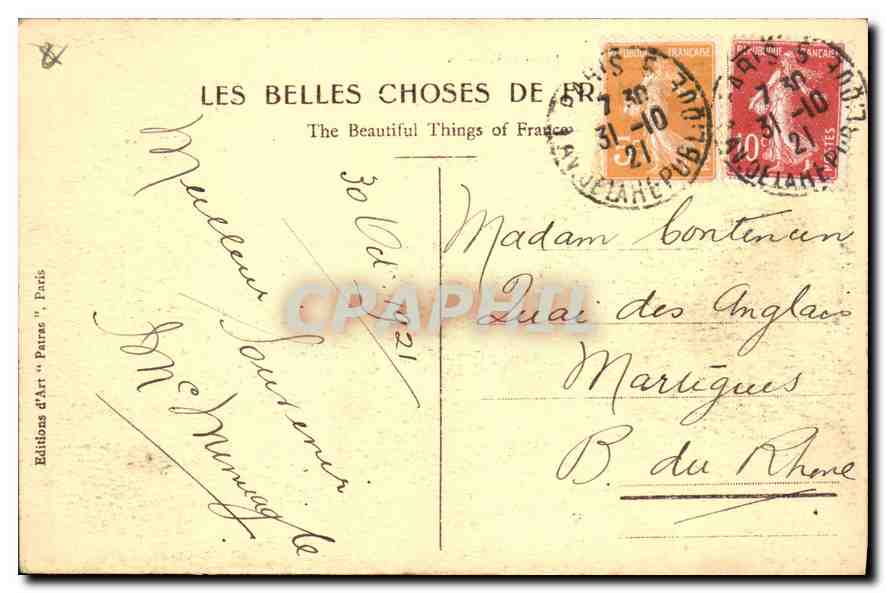 LES BELLES CHOSES DE FRA
The Beautiful Things of France
RÉPUBLIQUE FRANÇAISE
5
RÉPUBLIQUE FRANÇAISE
10c
POSTES
PARIS 5
7 30
31 -10
21
AV. DE LA REPUBLIQUE
PARIS 5
7 30
31 -10
21
AV. DE LA REPUBLIQUE
30 Oct 1921
Meilleur Souvenir
Madam Contencin
Quai des Anglais
Martigues
B. du Rhone
Editions d'Art " Patras ", Paris
CPAPHIL